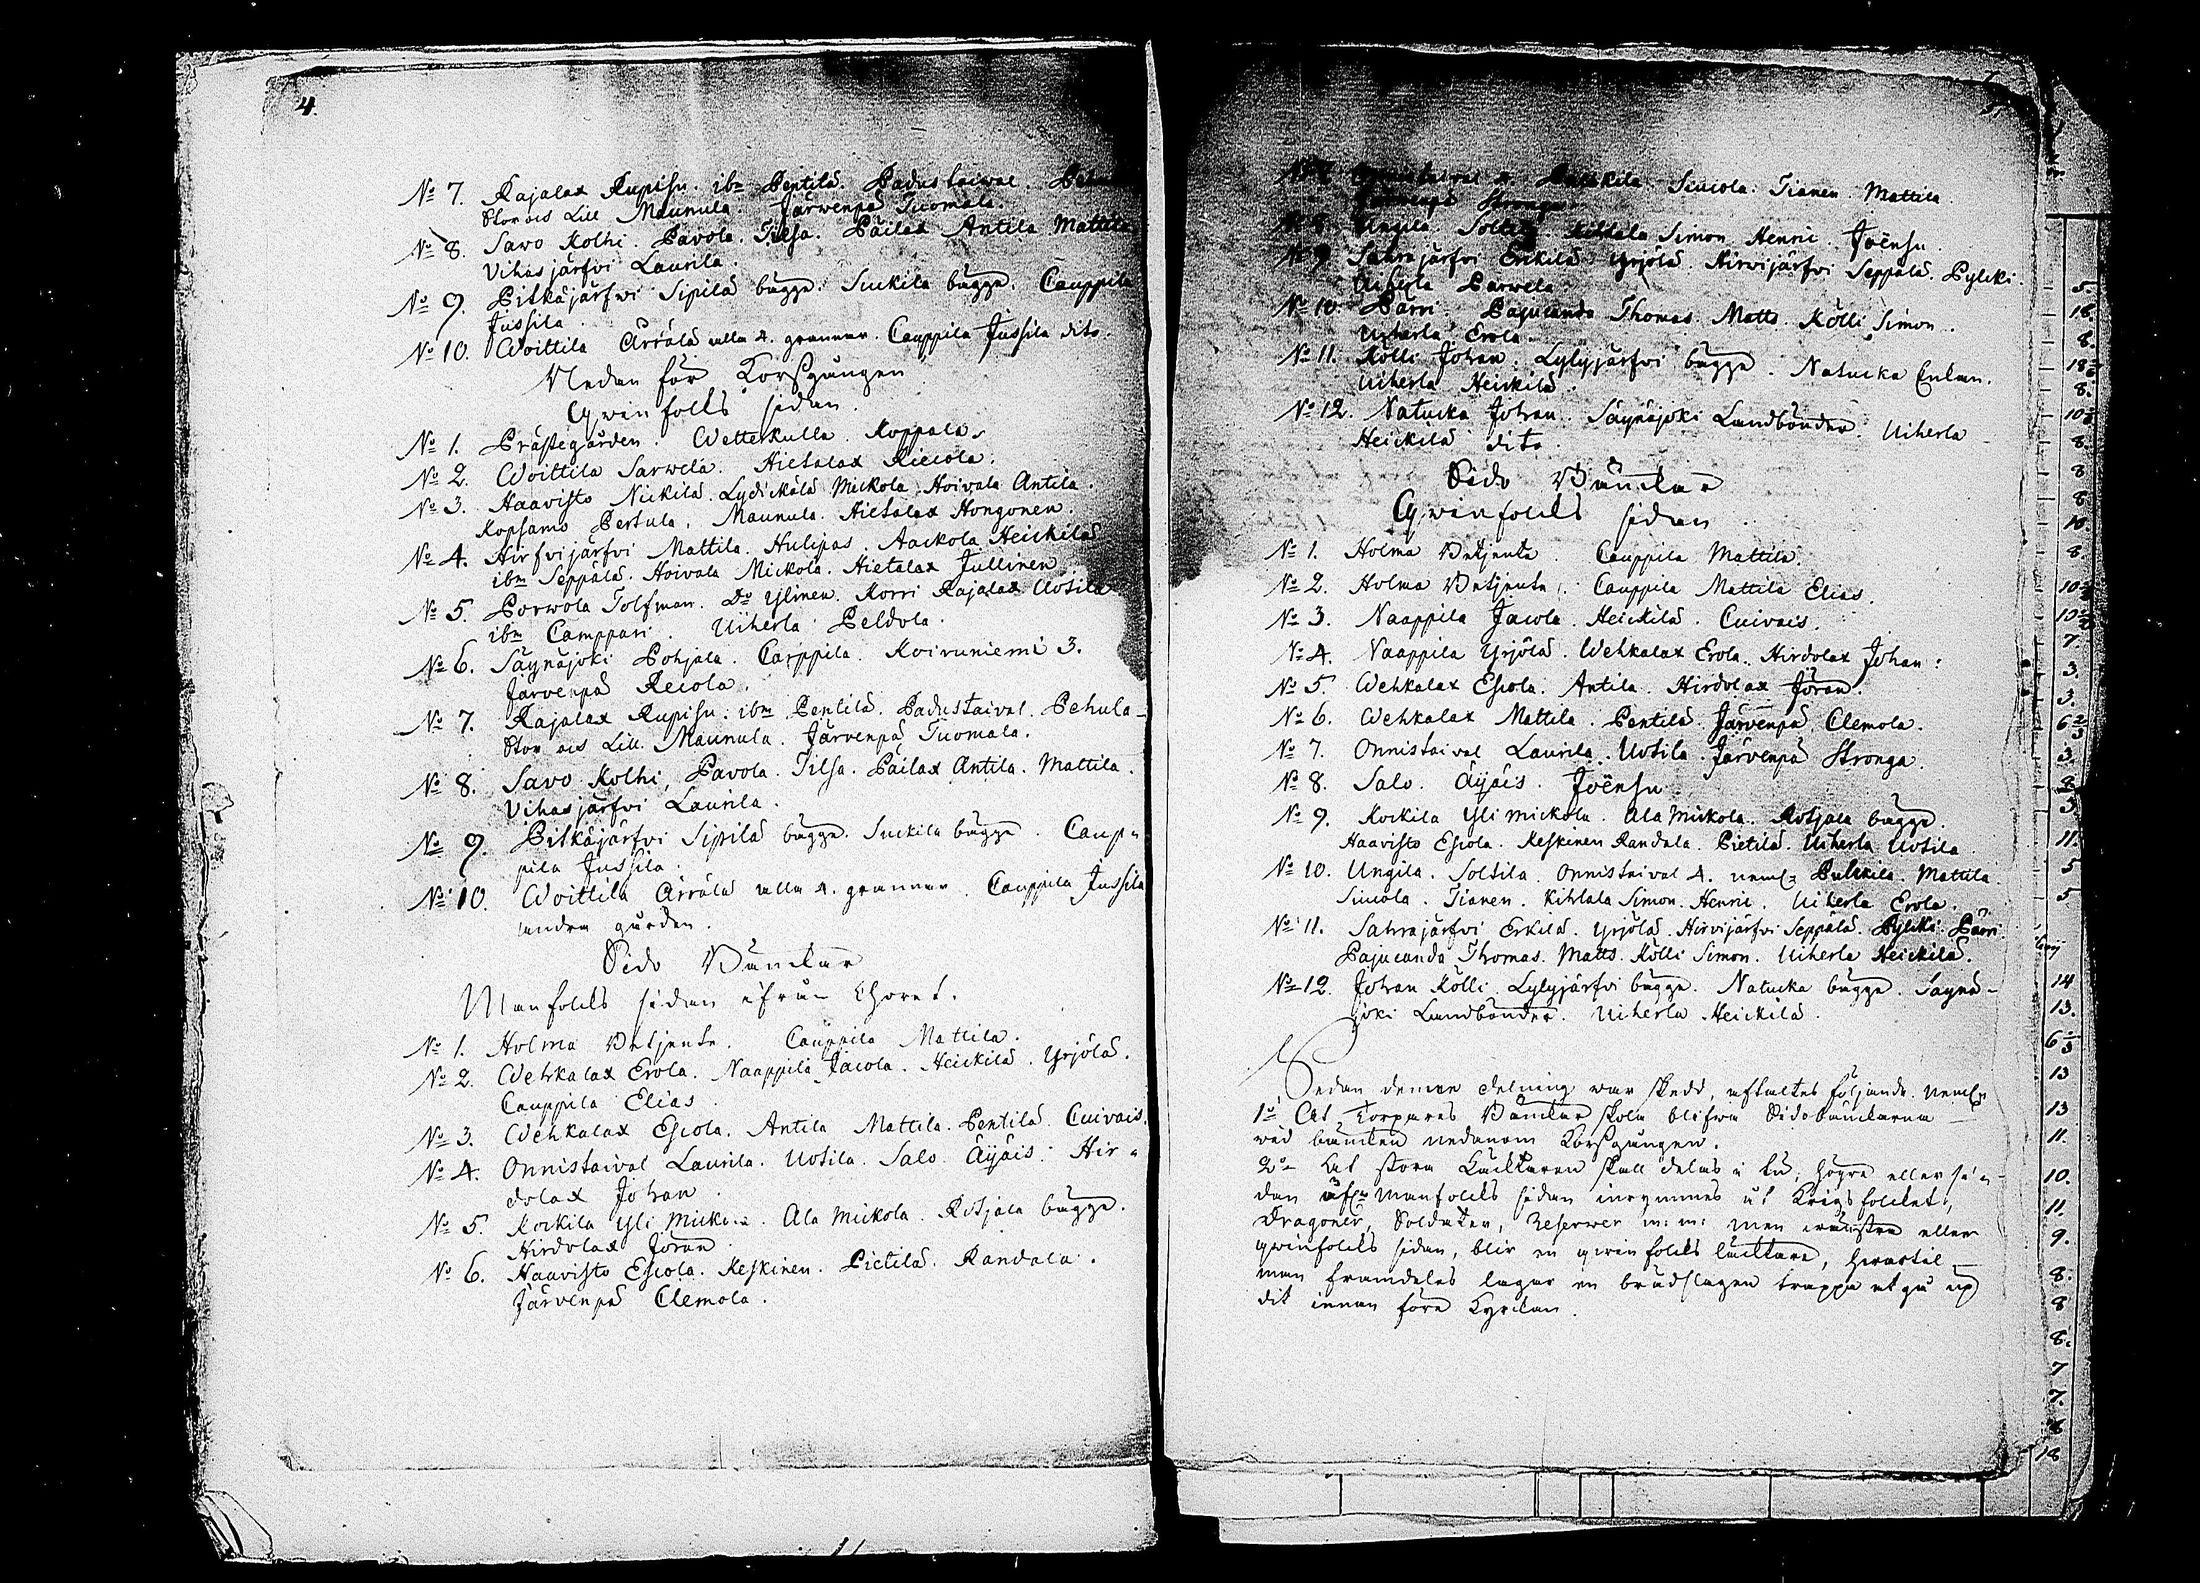 4.
No 7. Rajalax Rupisu. ibm Pentilä. Padustaival.
Storois Lill Maunula. Järwenpä Tuomala.
No 8. Savo Kolhi. Pavola. Tilsa. Päilax Antila Mattila
Vihasjärfvi Laurila.
No 9. Pitkäjärfwi Sipilä bägge. Suckila bägge. Cauppila
Jussila.
No 10. Woittila Ärrälä alla 4. grannar. Cauppila Jussila dito.
Nedan för Korssgången
Qwinfolks sidan.
No 1. Prästegården. Wetterkulla. Koppala.
No 2. Woittila Sarwela. Hietalax Riecola.
No 3. Haavisto Nickilä. Lydickälä Mickola. Hoivala Antila.
Kopsamo Pertula. Maunula. Hietalax Hongonen.
No 4. Hirfvijärfvi Mattila. Hulipas. Aackola Heickilä
ibm Seppälä. Hoivala Mickola. Hietalax Jullinen
No 5. Porwola Tolfman. Do Ylinen. Korri Rajalax Uotila
ibm Camppari. Uiherla Peldola.
No 6. Säynäjoki Pohjala. Carppila. Koiruniemi 3.
Järvenpä Recola.
No 7. Rajalax Rupisu. ibm Pentilä. Padustaival. Pehula
Stor ois Lill. Maunula. Järvenpä Tuomala.
No 8. Savo Kolhi, Pavola. Tilsa. Päilax Antila. Mattila.
Vihasjärfvi Laurila.
No 9. Pitkäjärfvi Sipilä bägge. Suckila bägge. Caup-
pila Jussila.
No 10. Woittila Ärrälä alla 4. grannar. Cauppila Jussila
andra gården.
Sido Bänckar
Manfolcks sidan ifrån Choret.
No 1. Holma Betjente. Cauppila Mattila.
No 2. Wehkalax Erola. Naappila Jacola. Heickilä. Yrjölä.
Cauppila Elias
No 3. Wehkalax Escola. Antila Mattila. Pentilä. Cuivais.
No 4. Onnistaival Laurila. Uotila. Salo. Äijäis. Hir-
dolax Johan.
No 5. Kockila Yli Mickola. Ala Mickola. Rotjala bägge.
Hirdolax Jöran
No 6. Haavisto Escola. Keskinen. Pietilä. Randala.
Järvenpä Clemola.
No 7. Onnistaival 4. Pulckila. Simola. Tianen. Mattila.
Järvenpä Stronga.
No 8. Ungila. Soltila. Kihlala Simon. Henric. Joënsu.
No 9. Sahrajärfvi Erckilä Yrjölä. Hirvijärfvi Seppälä. Pylcki.
Uiherla Parwela.
No 10. Pärri. Pajucanda Thomas. Matts. Kölli Simon.
Uiherla Erola.
No 11. Kölli Johan. Lylyjärfvi bägge. Natucka Enkan.
Uiherla Heickilä.
No 12. Natucka Johan. Säynäjoki Landbönder. Uiherla
Heickilä dito.
Sido Bänckar
Qwinfolcks sidan
No 1. Holma Betjente. Cauppila Mattila.
No 2. Holma Betjente. Cauppila Mattila Elias.
No 3. Naappila Jacola. Heickilä. Cuivais.
No 4. Naappila Yrjölä. Wehkalax Erola. Hirdolax Johan:
No 5. Wehkalax Escola. Antila. Hirdolax Jöran.
No 6. Wehkalax Mattila. Pentilä. Järvenpä Clemola.
No 7. Onnistaival Laurila. Uotila. Järvenpä Stronga.
No 8. Salo. Äijäis. Joënsu
No 9. Kockila Yli mickola. Ala Mickola. Rotjala bägge.
Haavisto Escola. Keskinen Randala. Pietilä. Uiherla Uotila
No 10. Ungila. Soltila. Onnistaival 4. neml. Pulckila. Mattila.
Simola. Tianen. Kihlala Simon. Henric. Uiherla Erola.
No 11. Sahrajärfvi Erkilä. Yrjölä. Hirvijärfvi Seppälä. Pylcki. Pärri.
Pajucanda Thomas. Matts. Kölli Simon. Uiherla Heickilä.
No 12. Johan Kölli. Lylyjärfvi bägge. Natucka bägge. Säynä-
joki Landbönder. Uiherla Heickilä.
Sedan denne delning war skedd, aftaltes följande. neml.
1o At Torpares Bänckar skola blifwa Sidobänckarna
wid bäncken nedanom Korssgången.
2o At stora Läcktaren skall delas i tu, högre eller si-
dan åt Manfolcks sidan inrymmes åt Krigsfolcket,
Dragoner, Soldater, Reserwer m: m: men wänstra eller
qwinfolcks sidan, blir en qwinfolcks läcktare, hwartil
man framdeles lagar en brädslagen trappa at gå up
dit innan före Kyrckan.
5.
18.
8.
8.
8.
8
8
10.
8.
7.
3.
3.
6 2/3
3.
8
3.
11.
5
5
14
13.
13
13
11.
10.
11.
9.
8.
8
8.
7
7.
8
18